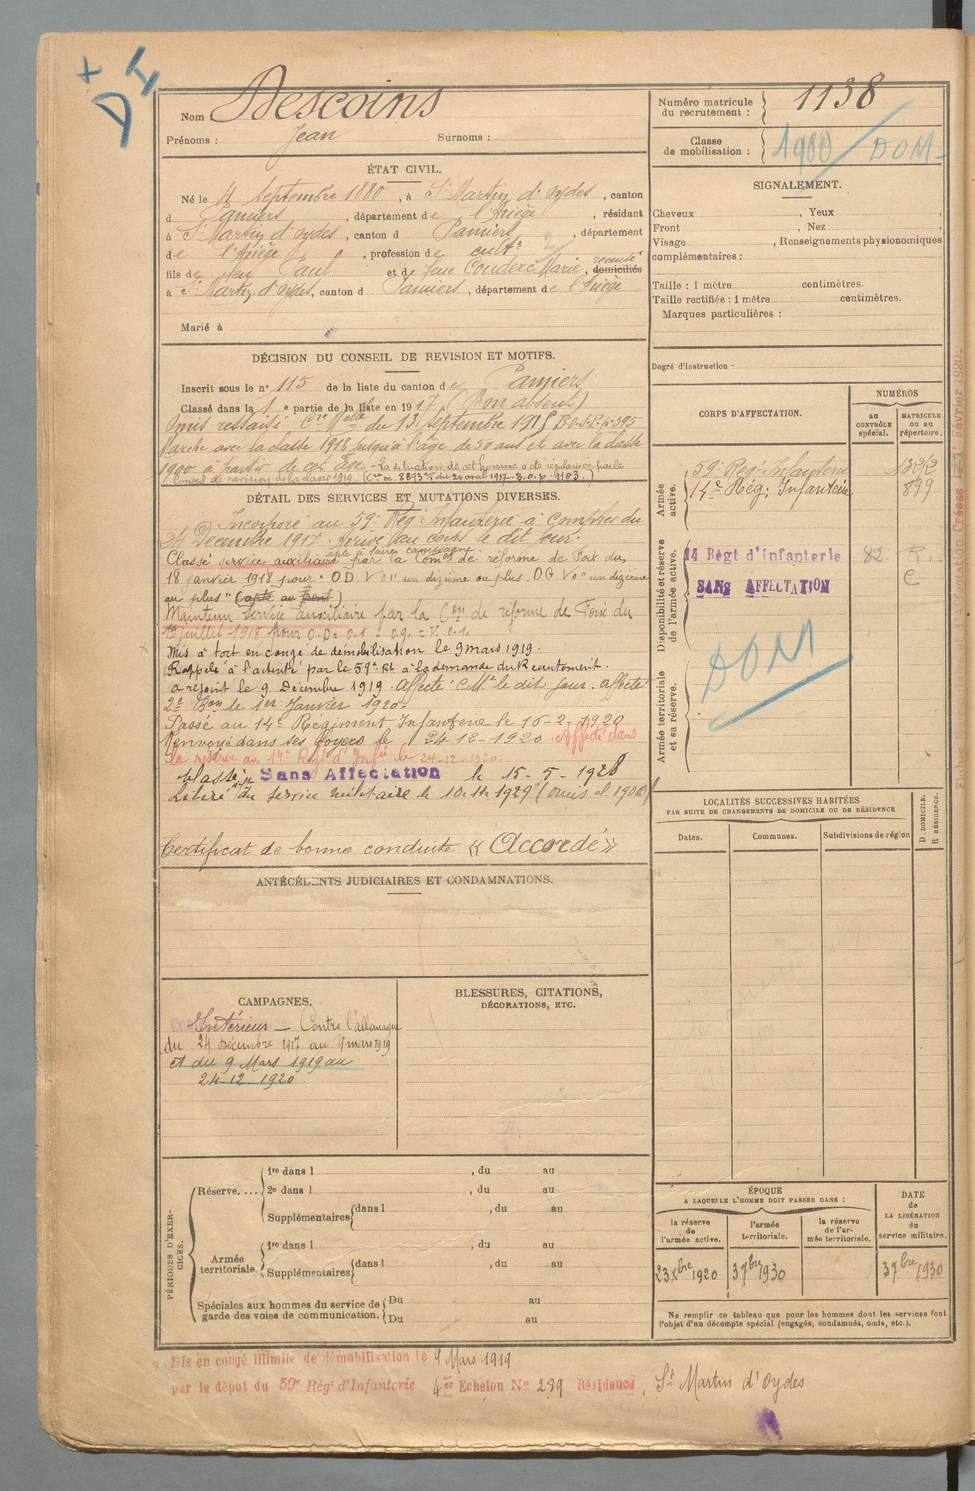 D I
Nom Descoins
Prénoms : Jean Surnoms :
Numéro matricule du recrutement : 1138
Classe de mobilisation : 1900 DOM
ÉTAT CIVIL.
Né le 4 Septembre 1880, à St Martin d'oydes, canton
d Pamiers, département de l'Ariège, résidant
à St Martin d'oydes, canton d Pamiers, département
de l'Ariège, profession de cultr 2
fils de feu Paul et de feue Couderc Marie, domiciliés
à St Martin d'oydes, canton d Pamiers, département de l'Ariège
Marié à
SIGNALEMENT.
Cheveux , Yeux
Front , Nez
Visage , Renseignements physionomiques
complémentaires :
Taille : 1 mètre centimètres.
Taille rectifiée : 1 mètre centimètres.
Marques particulières :
Degré d'instruction :
DÉCISION DU CONSEIL DE REVISION ET MOTIFS.
Inscrit sous le n° 115 de la liste du canton de Pamiers
Classé dans la 1e partie de la liste en 1917 (Bon absent)
Omis Cre Melle du 13 septembre 1915 B.O.P.P. p. 395
Marche avec la classe 1918 jusqu'à l'âge de 50 ans et avec la classe
1900 à partir de cet âge - La situation de cet homme a été régularisée par le
Conseil de revision de la classe 1919 (Cre m. du 20 avril 1917. B.O.p. 1103.)
DÉTAIL DES SERVICES ET MUTATIONS DIVERSES.
Incorporé au 59e Rég. Infanterie à compter du
24 Décembre 1917. Arrivé au corps le dit jour.
Classé service auxiliaire apte à faire campagne par la Comon de réforme de Foix du
18 janvier 1918 pour : OD. V = un dixième au plus. OG V = un dixième
au plus" (apte au
Maintenu Service auxiliaire par la Con de réforme de Foix du
juillet 1918 pour O.D = 0.1 - O.g. = 0.1.
Mis à tort en congé de démobilisation le 9 mars 1919.
Rappelé à l'activité par le 59e RI à la demande du Recrutement.
a rejoint le 9 Décembre 1919. Affecté le dit jour. affecté
2e Bon le 1er Janvier 1920.
Passé au 14e Régiment Infanterie le 16-2-1920
Renvoyé dans ses foyers le 24-12-1920. Affecté dans
la réserve au 14e Régt d'Infie le 24-12-1920.
Classé Sans Affectation le 15-5-1928
Libéré du service militaire le 10.11.1929 (omis cl. 1900)
Certificat de bonne conduite « Accordé »
CORPS D'AFFECTATION.
NUMÉROS
au CONTRÔLE spécial.
MATRICULE ou au répertoire.
Armée active.
59e Rég. Infanterie
14e Rég. Infanterie 899
Disponibilité et réserve de l'armée active.
14 Régt d'Infanterie 82.
SANS AFFECTATION
Armée territoriale et sa réserve.
DOM
LOCALITÉS SUCCESSIVES HABITÉES
PAR SUITE DE CHANGEMENTS DE DOMICILE OU DE RÉSIDENCE
Dates. Communes. Subdivisions de région
D. DOMICILE. R. RÉSIDENCE.
ANTÉCÉDENTS JUDICIAIRES ET CONDAMNATIONS.
CAMPAGNES.
Intérieur - Contre l'allemagne
du 24 Décembre 1917 au 9 mars 1919
et du 9 Mars 1919 au
24-12-1920
BLESSURES, CITATIONS,
DÉCORATIONS, ETC.
PÉRIODES D'EXERCICES.
Réserve.... 1re dans l , du au
2e dans l , du au
Supplémentaires dans l , du au
du au
Armée territoriale. 1re dans l , du au
Supplémentaires dans l , du au
du au
Spéciales aux hommes du service de garde des voies de communication. Du au
Du au
ÉPOQUE
A LAQUELLE L'HOMME DOIT PASSER DANS :
la réserve de l'armée active. l'armée territoriale. la réserve de l'armée territoriale.
DATE de LA LIBÉRATION du service militaire.
23 Xbre 1920 3 7bre 1930 3 7bre 1930
Ne remplir ce tableau que pour les hommes dont les services font
l'objet d'un décompte spécial (engagés, condamnés, omis, etc.).
Mis en congé illimité de démobilisation le 9 Mars 1919
par le dépot du 59e Régt d'Infanterie 4er Echelon No 239 Résidence, St Martin d'oydes